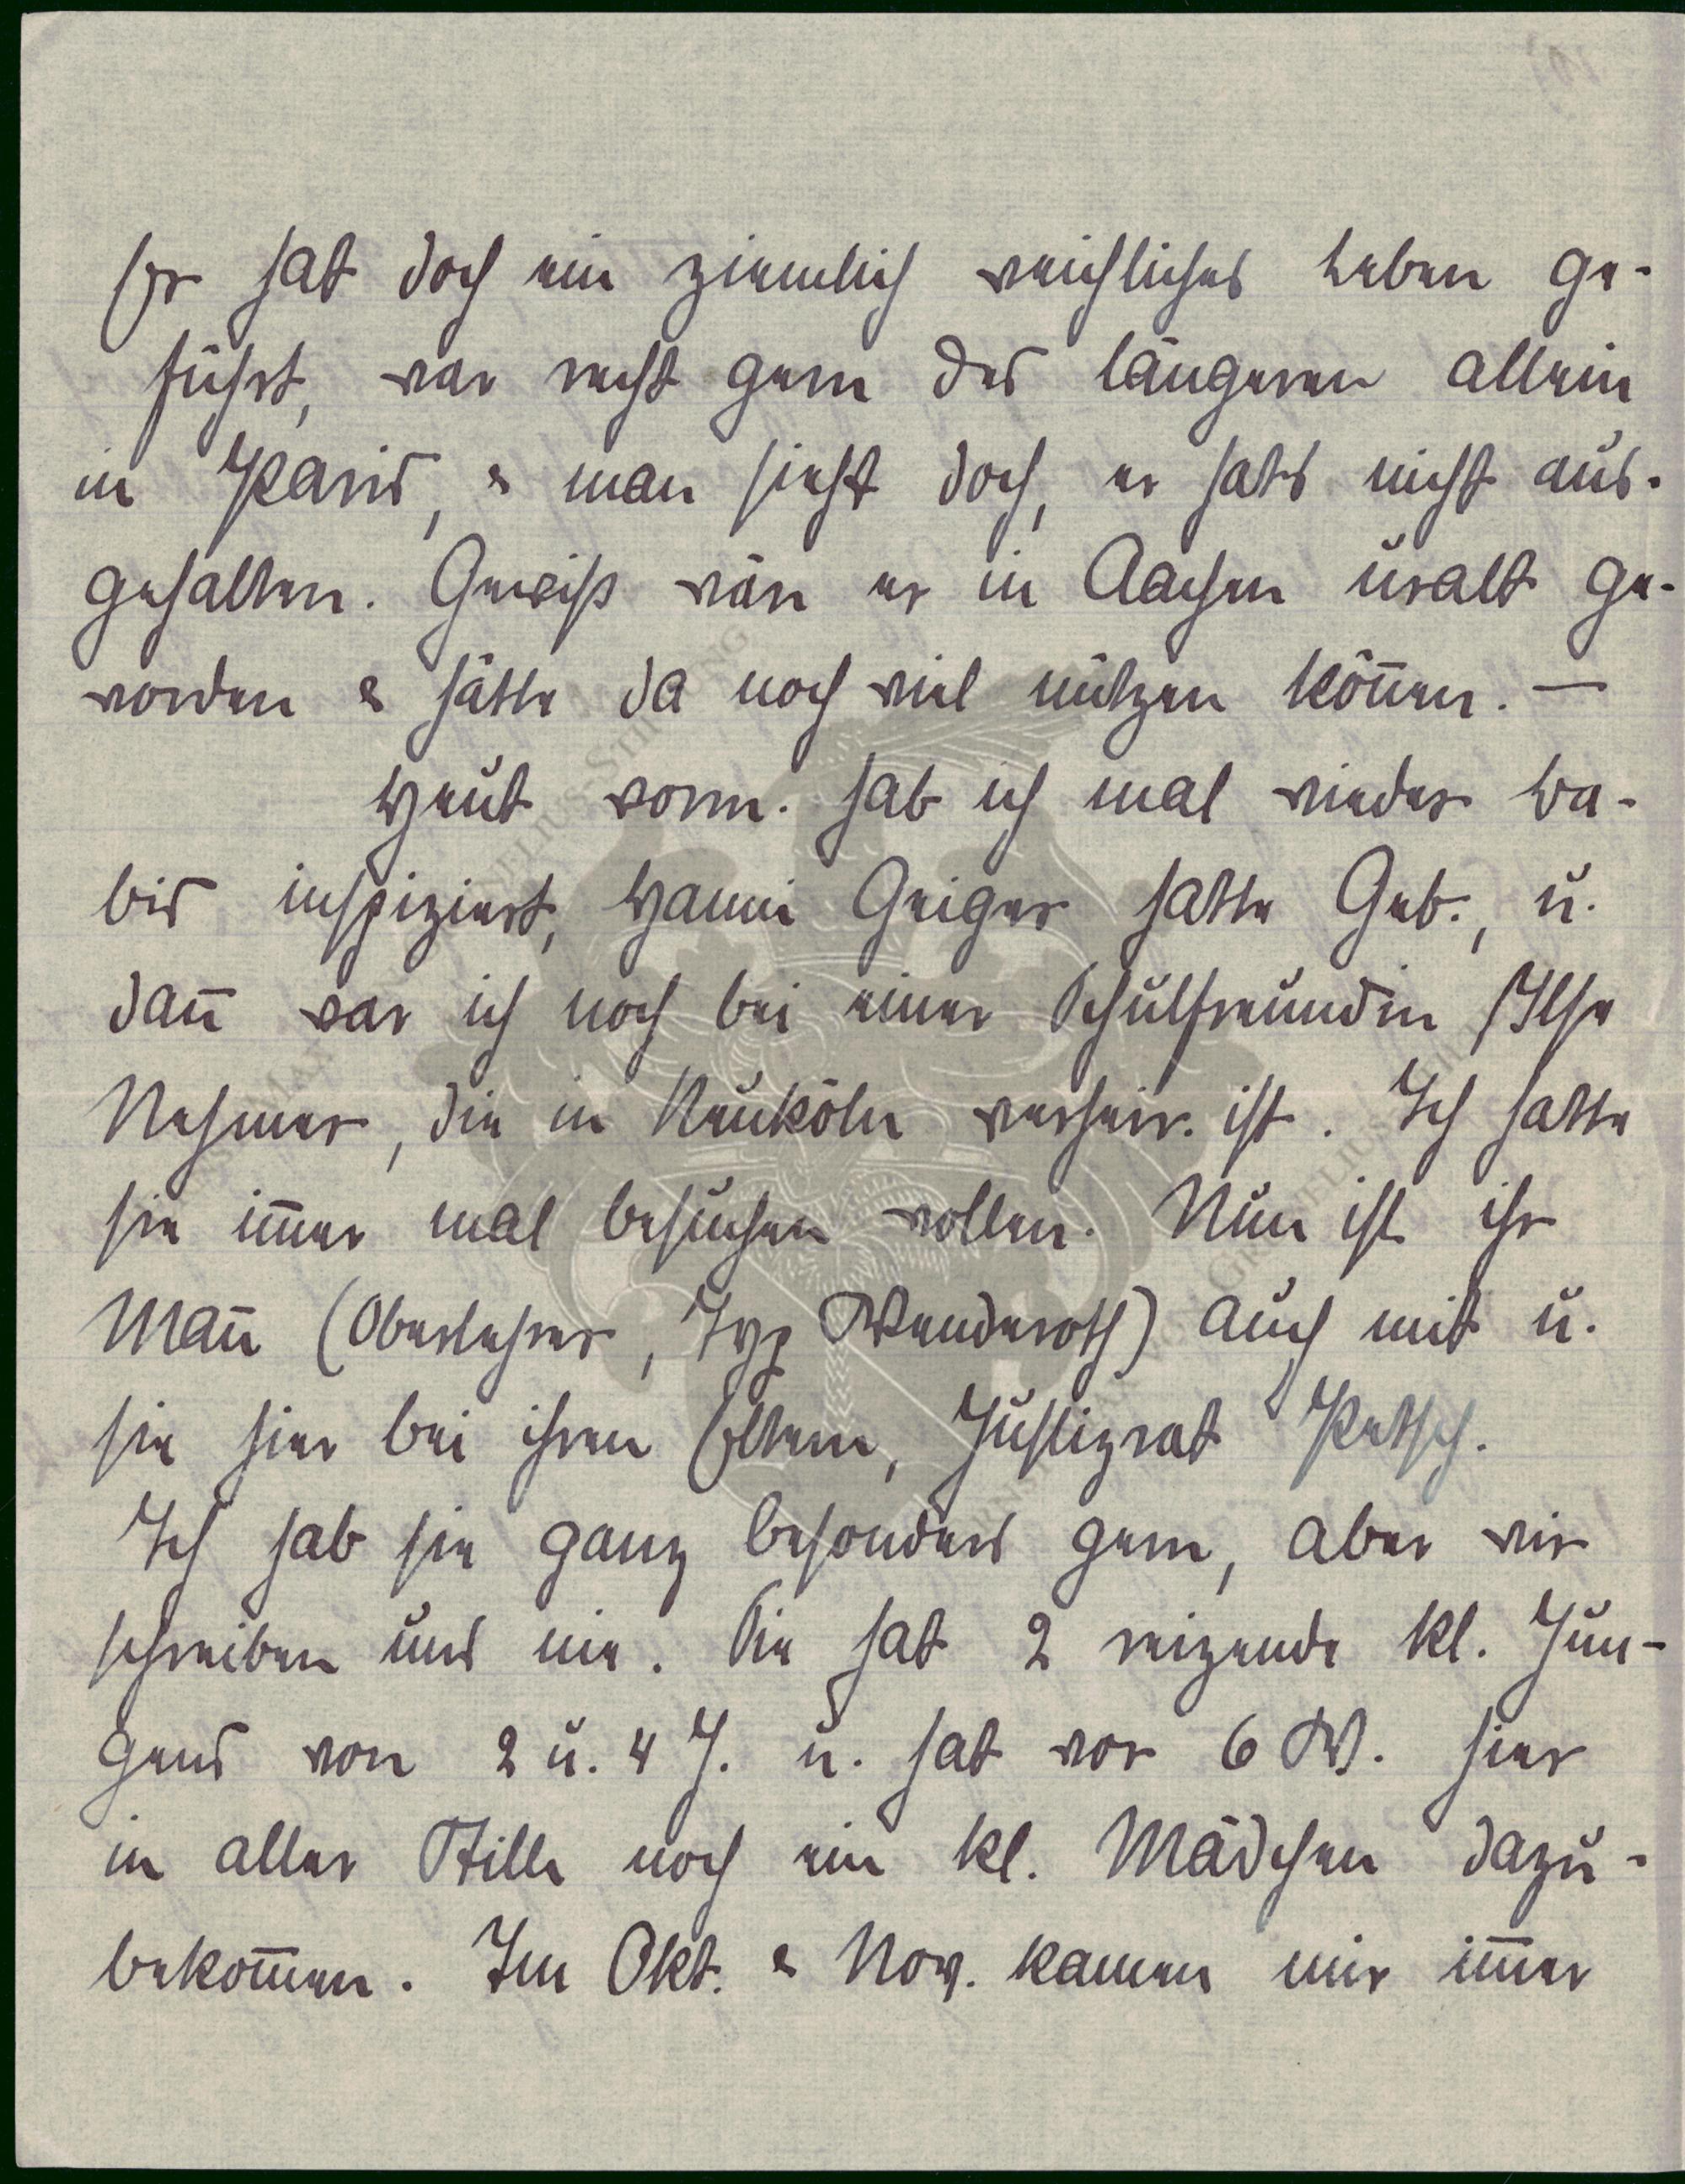 Er hat doch ein ziemlich reichliches Leben ge-
führt, war recht gern des längeren allein
in Paris, & man sieht doch, er hats nicht aus-
gehalten. Gewiss wär er in Aachen uralt ge-
worden & hätte da noch viel nützen kön̄en. —
Heut vorm. hab ich mal wieder Ba-
bis inspiziert, Hanni Geiger hatte Geb., u.
dan̄ war ich noch bei einer Schulfreundin Ilse
Nehmer, die in Neuköln verheir. ist. Ich hatte
sie im̄er mal besuchen wollen. Nun ist ihr
Man̄ (Oberlehrer, Typ Wenderoth) auch mit u.
sie hier bei ihren Eltern, Justizrat Petsch.
Ich hab sie ganz besonders gern, aber wir
schreiben uns nie. Sie hat 2 reizende kl. Jun-
gens von 2 u. 4 J. u. hat vor 6 W. hier
in aller Stille noch ein kl. Mädchen dazu-
bekom̄en. Im Okt. & Nov. kamen mir im̄er